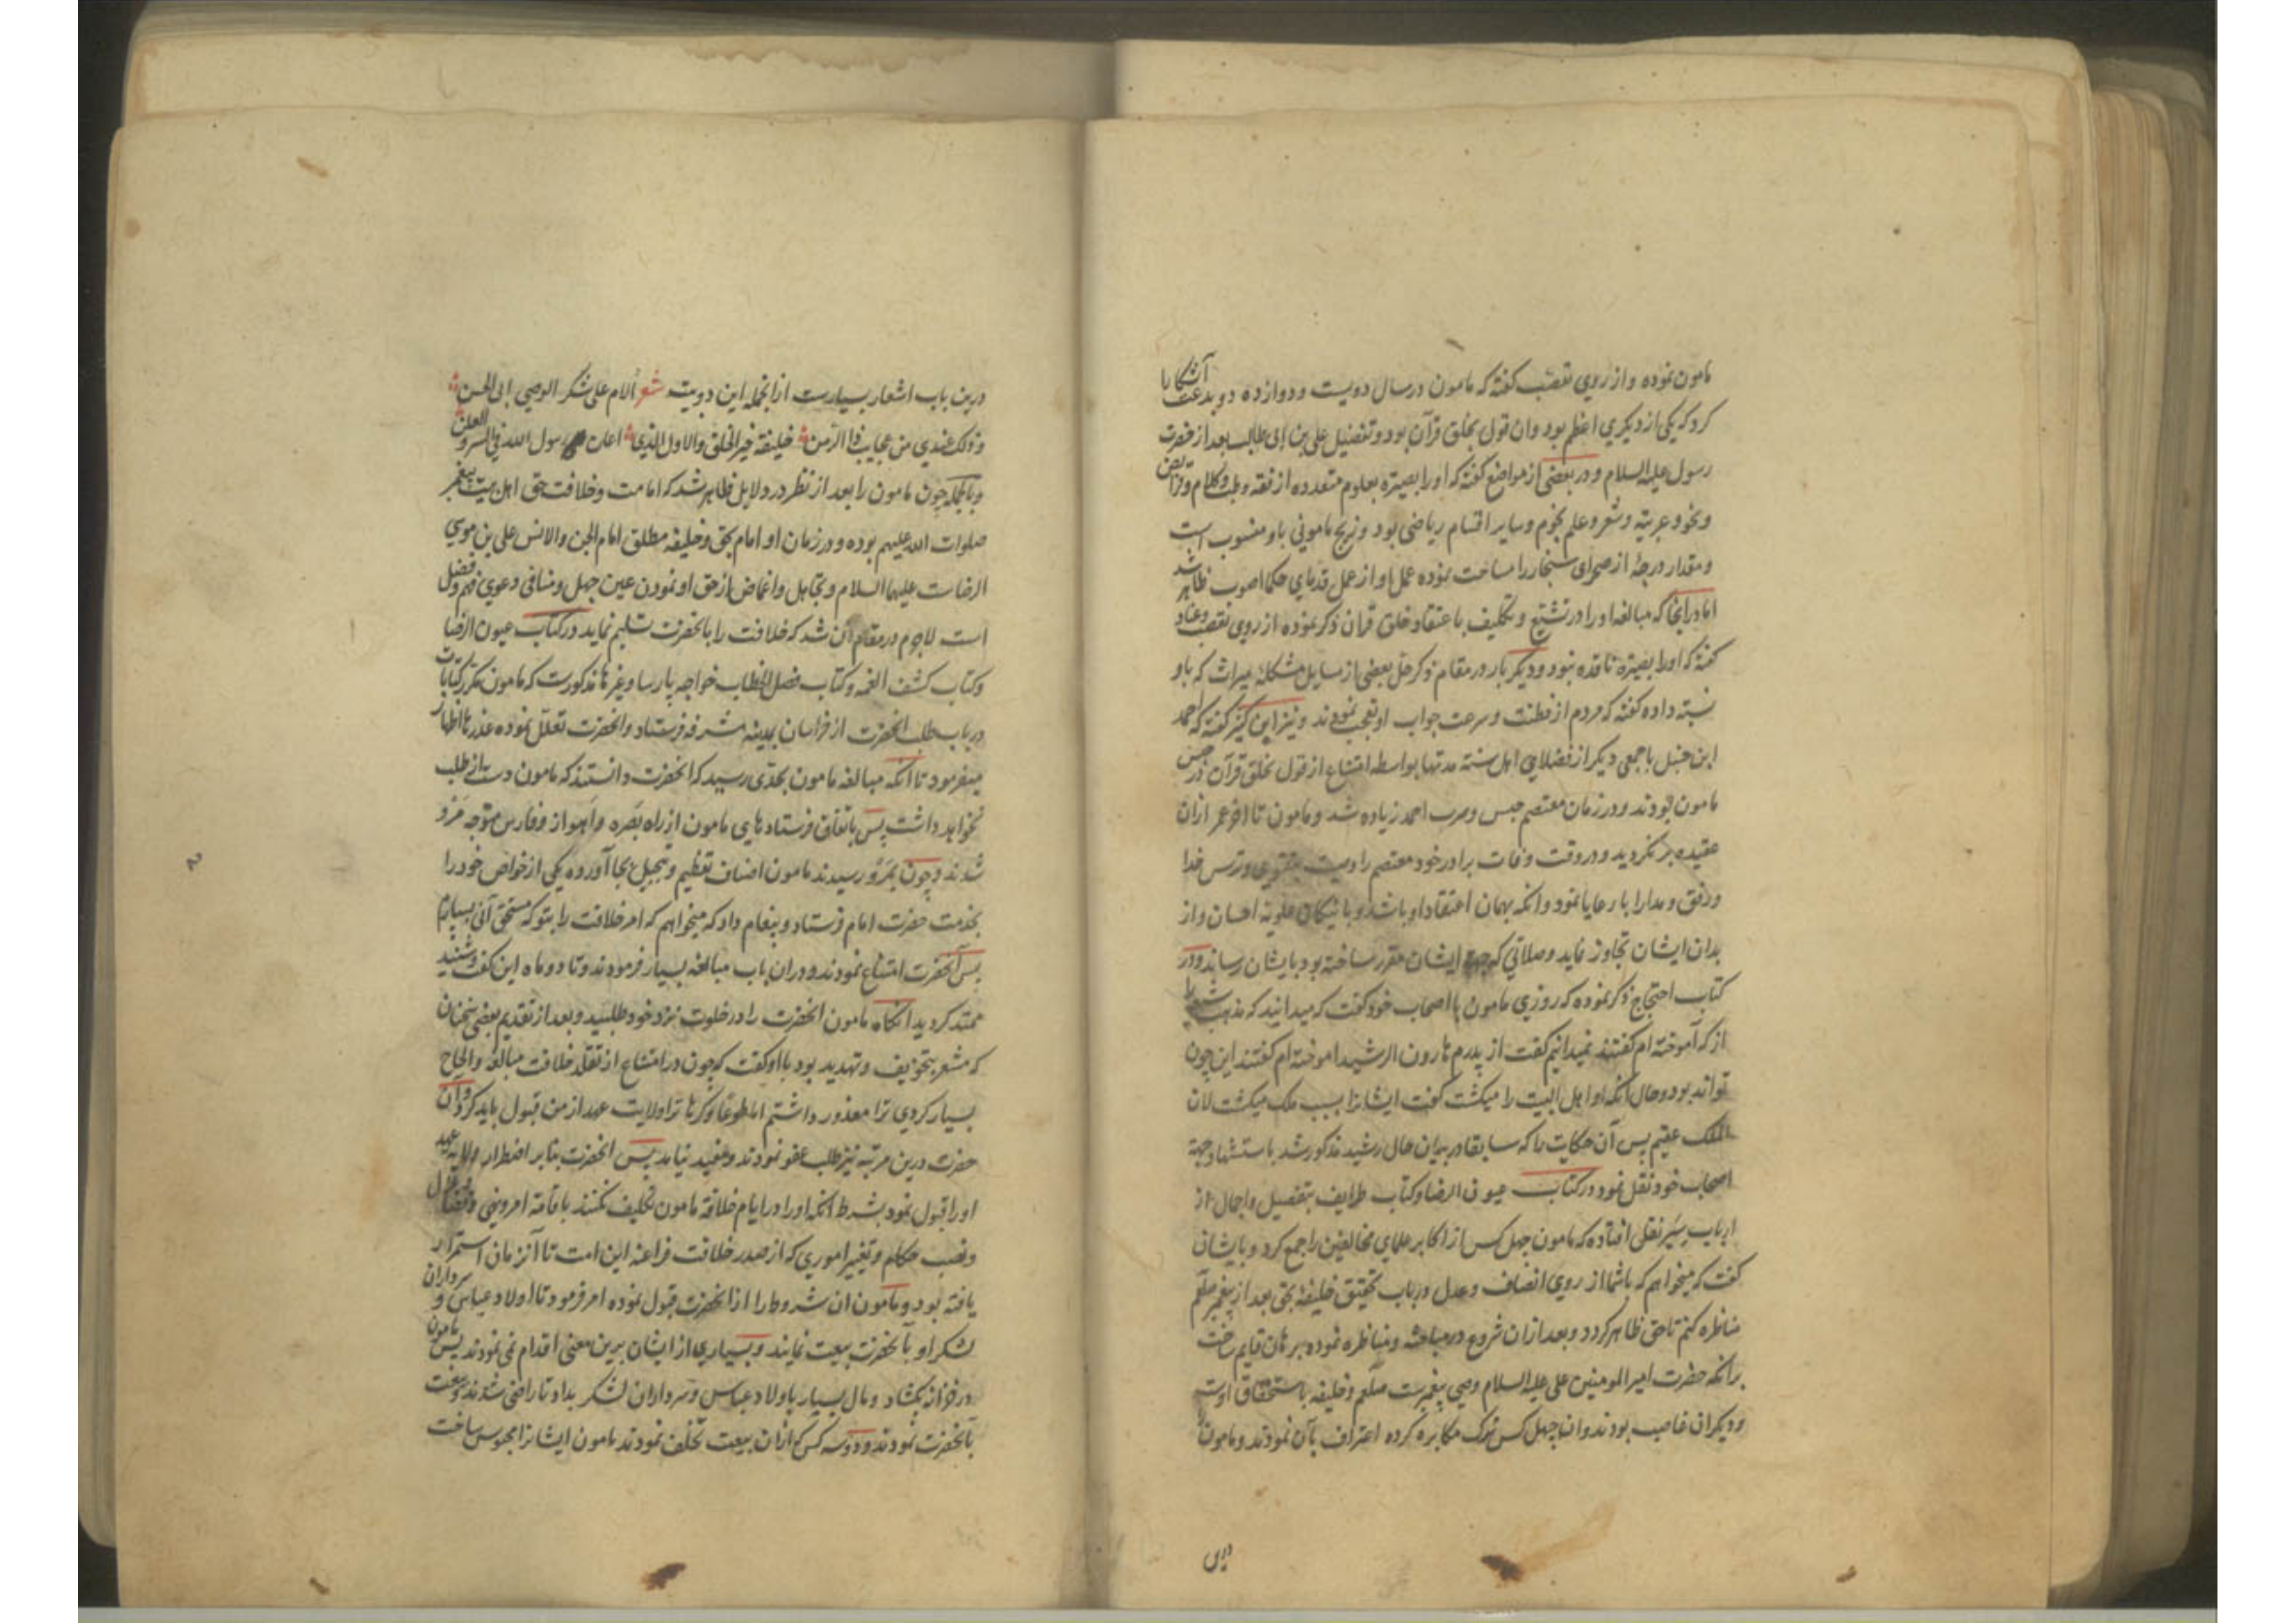 مامون نموده و از روی تعصب گفته که مامون در سال دویست و دوازده دو بدعت آشکارا
کرد که یکی از دیگری اعظم بود وان قول بخلق قرآن بود و تفضیل علی بن ابی طالب بعد از حضرت
رسول علیه السلام و در بعضی از مواضع گفته که او را بصیرة بعلوم متعدده از فقه و طب و کلام و فرایض
و نحو و عربیة و شعر و علم نجوم و سایر اقسام ریاضی بود و زیج مامونی باو منسوب است
و مقدار درجهٔ از صحرای سنجار را مساحت نموده عمل او از عمل قدمای حکما اصوب ظاهر شد
اما در اینجا که مبالغه او را در تشیع و تکلیف باعتقاد خلق قران ذکر نموده از روی تعصب و عناد
گفته که او را بصیرة نافده نبود و دیگر بار در مقام ذکر حل بعضی از مسایل مشکله میراث که باو
نسبة داده گفته که مردم از فطنت و سرعت جواب او تعجب نمودند و نیز ابن کثیر گفته که احمد
ابن حنبل با جمعی دیگر از فضلای اهل سنة مدتها بواسطه امتناع از قول بخلق قرآن در حبس
مامون بودند و در زمان معتصم حبس و ضرب احمد زیاده شد و مامون تا اخر عمر ازان
عقیده بر نگردید و در وقت وفات برادر خود معتصم را وصیت بتقوی و ترس خدا
و رفق و مدارا با رعایا نمود و انکه بهمان اعتقاد او باشد و با نیکان علویه احسان و از
بدان ایشان تجاوز نماید و صلاتی که جهة ایشان مقرر ساخته بود بایشان رساند و در
کتاب احتجاج ذکر نموده که روزی مامون با اصحاب خود گفت که میدانید که مذهب شیعه را
از که آموخته ام گفتند نمیدانیم گفت از پدرم هارون الرشید اموخته ام گفتند این چون
تواند بود و حال انکه او اهل البیت را میکشت گفت ایشانرا بسبب ملک میکشت لان
الملک عقیم پس آن حکایت را که سابقا در بیان حال رشید مذکور شد باستشهاد جهة
اصحاب خود نقل نمود در کتاب عیون الرضا و کتاب طرایف بتفصیل و اجمال از
ارباب سیر نقل افتاده که مامون چهل کس از اکابر علمای مخالفین را جمع کرد و بایشان
گفت که میخواهم که باشما از روی انصاف و عدل در باب تحقیق خلیفه بحق بعد از پیغمبر صلعم
مناظره کنم تا حق ظاهر کردد و بعد ازان شروع در مباحثه و مناظره نموده برهان قایم ساخت
برانکه حضرت امیر المومنین علی علیه السلام وصی پیغمبرست صلعم و خلیفه باستحقاق اوست
و دیگران غاصب بودند وان چهل کس ترک مکابره کرده اعتراف بآن نمودند و مامون را
درین
درین باب اشعار بسیارست ازانجمله این دو بیت شعر أُلام علی شکر الوصی ابی الحسن
و ذلک عندی من عجایب ذا الزمن خلیفة خیر الخلق والاول الذی اعان رسول الله فی السر والعلن
و بالجمله چون مامون را بعد از نظر در دلایل ظاهر شد که امامت و خلافت حق اهل بیت پیغمبر
صلوات الله علیهم بوده و در زمان او امام بحق و خلیفه مطلق امام الجن والانس علی بن موسی
الرضاست علیهما السلام و تجاهل و اغماض از حق او نمودن عین جهل و منافی دعوی فهم و فضل
است لاجرم در مقام آن شد که خلافت را بانحضرت تسلیم نماید در کتاب عیون الرضا
و کتاب کشف الغمه و کتاب فصل الخطاب خواجه پارسا و غیرها مذکورست که مامون مکرر کتابات
در باب طلب انحضرت از خراسان بمدینه مشرفه فرستاد و انحضرت تعلل نموده عذرها اظهار
میفرمود تا آنکه مبالغه مامون بحدی رسید که انحضرت دانستند که مامون دست از طلب
نخواهد داشت پس باتفاق فرستادهای مامون از راه بصره و اهواز و فارس متوجه مرو
شدند و چون بمرو رسیدند مامون اصناف تعظیم و تبجیل بجا آورده یکی از خواص خود را
بخدمت حضرت امام فرستاد و پیغام داد که میخواهم که امر خلافت را بتو که مستحق آنی بسپارم
پس آنحضرت امتناع نمودند و دران باب مبالغه بسیار فرمودند و تا دو ماه این گفت و شنید
ممتد کردید انگاه مامون انحضرت را در خلوت نزد خود طلبید و بعد از تقدیم بعضی سخنان
که مشعر بتخویف و تهدید بود با او گفت که چون در امتناع از تقلد خلافت مبالغه و الحاح
بسیار کردی ترا معذور داشتم اما طوعا و کرها ترا ولایت عهد از من قبول باید کرد و آن
حضرت درین مرتبه نیز طلب عفو نمودند و مفید نیامد پس انحضرت بنابر اضطرار ولایة عهد
او را قبول نمود بشرط انکه او را در ایام خلافة مامون تکلیف نکنند باقامة امر و نهی و قضا و عزل
و نصب حکام و تغییر اموری که از صدر خلافت فراعنه این امت تا آنزمان استمرار
یافته بود و مامون ان شروط را از انحضرت قبول نموده امر فرمود تا اولاد عباس و سرداران
لشکر او بآنحضرت بیعت نمایند و بسیاری از ایشان برین معنی اقدام نمی نمودند پس مامون
در خزانه بکشاد و مال بسیار باولاد عباس و سرداران لشکر بداد تا راضی شدند و بیعت
بآنحضرت نمودند و دو سه کس که ازان بیعت تخلف نمودند مامون ایشانرا محبوس ساخت